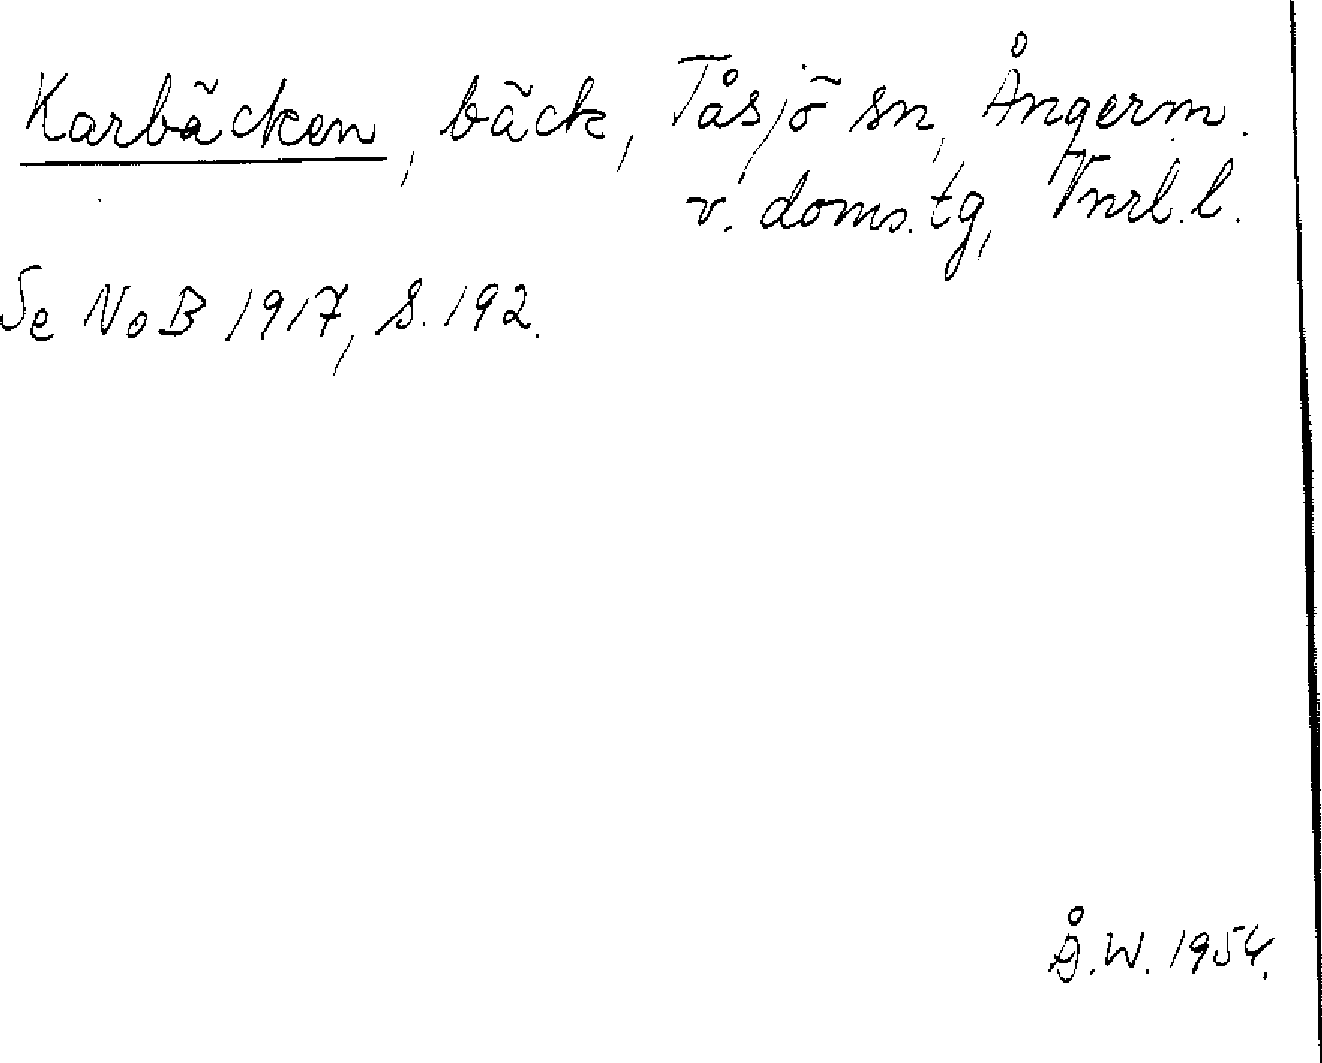 Karbäcken, bäck, Tåsjö sn, Ångerm.
v. doms.tg, Vnrl.l.
Se NoB 1917, s. 192.
Å.W. 1954.